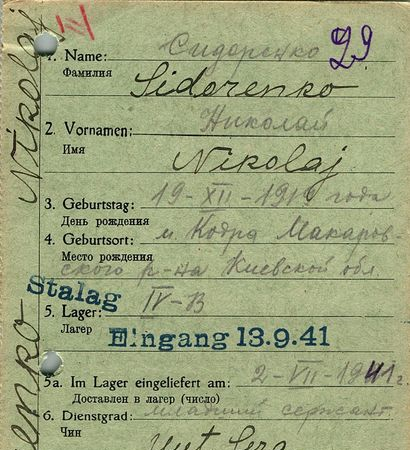 II
1. Name: Сидоренко 29
Фамилия Sidorenko
2. Vornamen: Николай
Имя Nikolaj
3. Geburtstag: 19-XII-191 года
День рождения
4. Geburtsort: м. Кодра Макаров-
Место рождения
ского р-на Киевской обл
Stalag
5. Lager: IV-B
Лагер
Eingang 13.9.41
5a. Im Lager eingeliefert am: 2-VII-1941 г.
Доставлен в лагер (число)
6. Dienstgrad: младший сержант
Чин Unt Serg
Nikolaj
enko